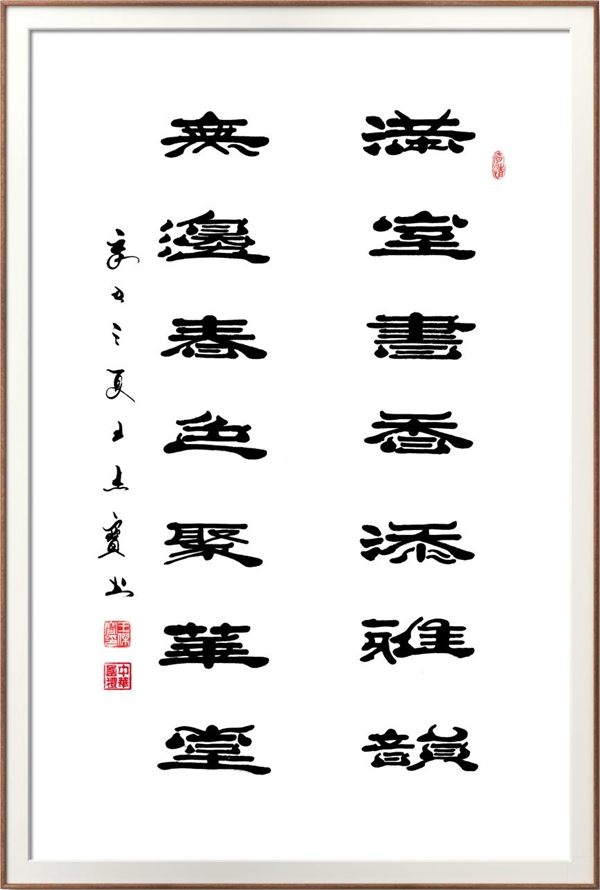 滿室書香添雅韻
無邊春色聚華堂
辛丑之夏王杰寶书
中華國禮